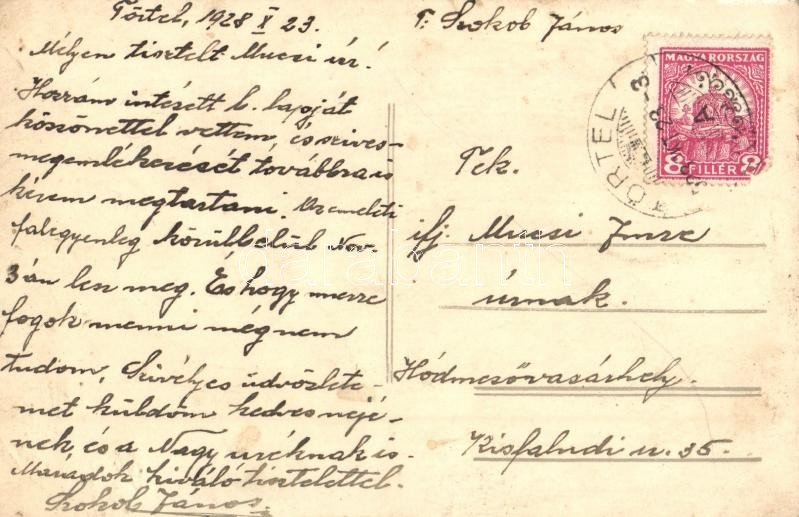 Törtel, 1928 X 23.
Mélyen tisztelt Mucsi úr!
Hozzám intézett b. lapját
köszönettel vettem, és szives
megemlékezését továbbra is
kérem megtartani. Az emeleti
falegyenleg körülbelül Nov.
3án lesz meg. És hogy merre
fogok menni még nem
tudom, Szivélyes üdvözlete-
met küldöm kedves nejé-
nek, és a Nagy uréknak is.
Maradok kiváló tisztelettel.
Szokob János
F: Szokob János
MAGYARORSZÁG
8 FILLÉR 8
TÖRTEL
Tek.
ifj. Mucsi Imre
úrnak.
Hódmezővásárhely.
Kisfaludi u. 35.